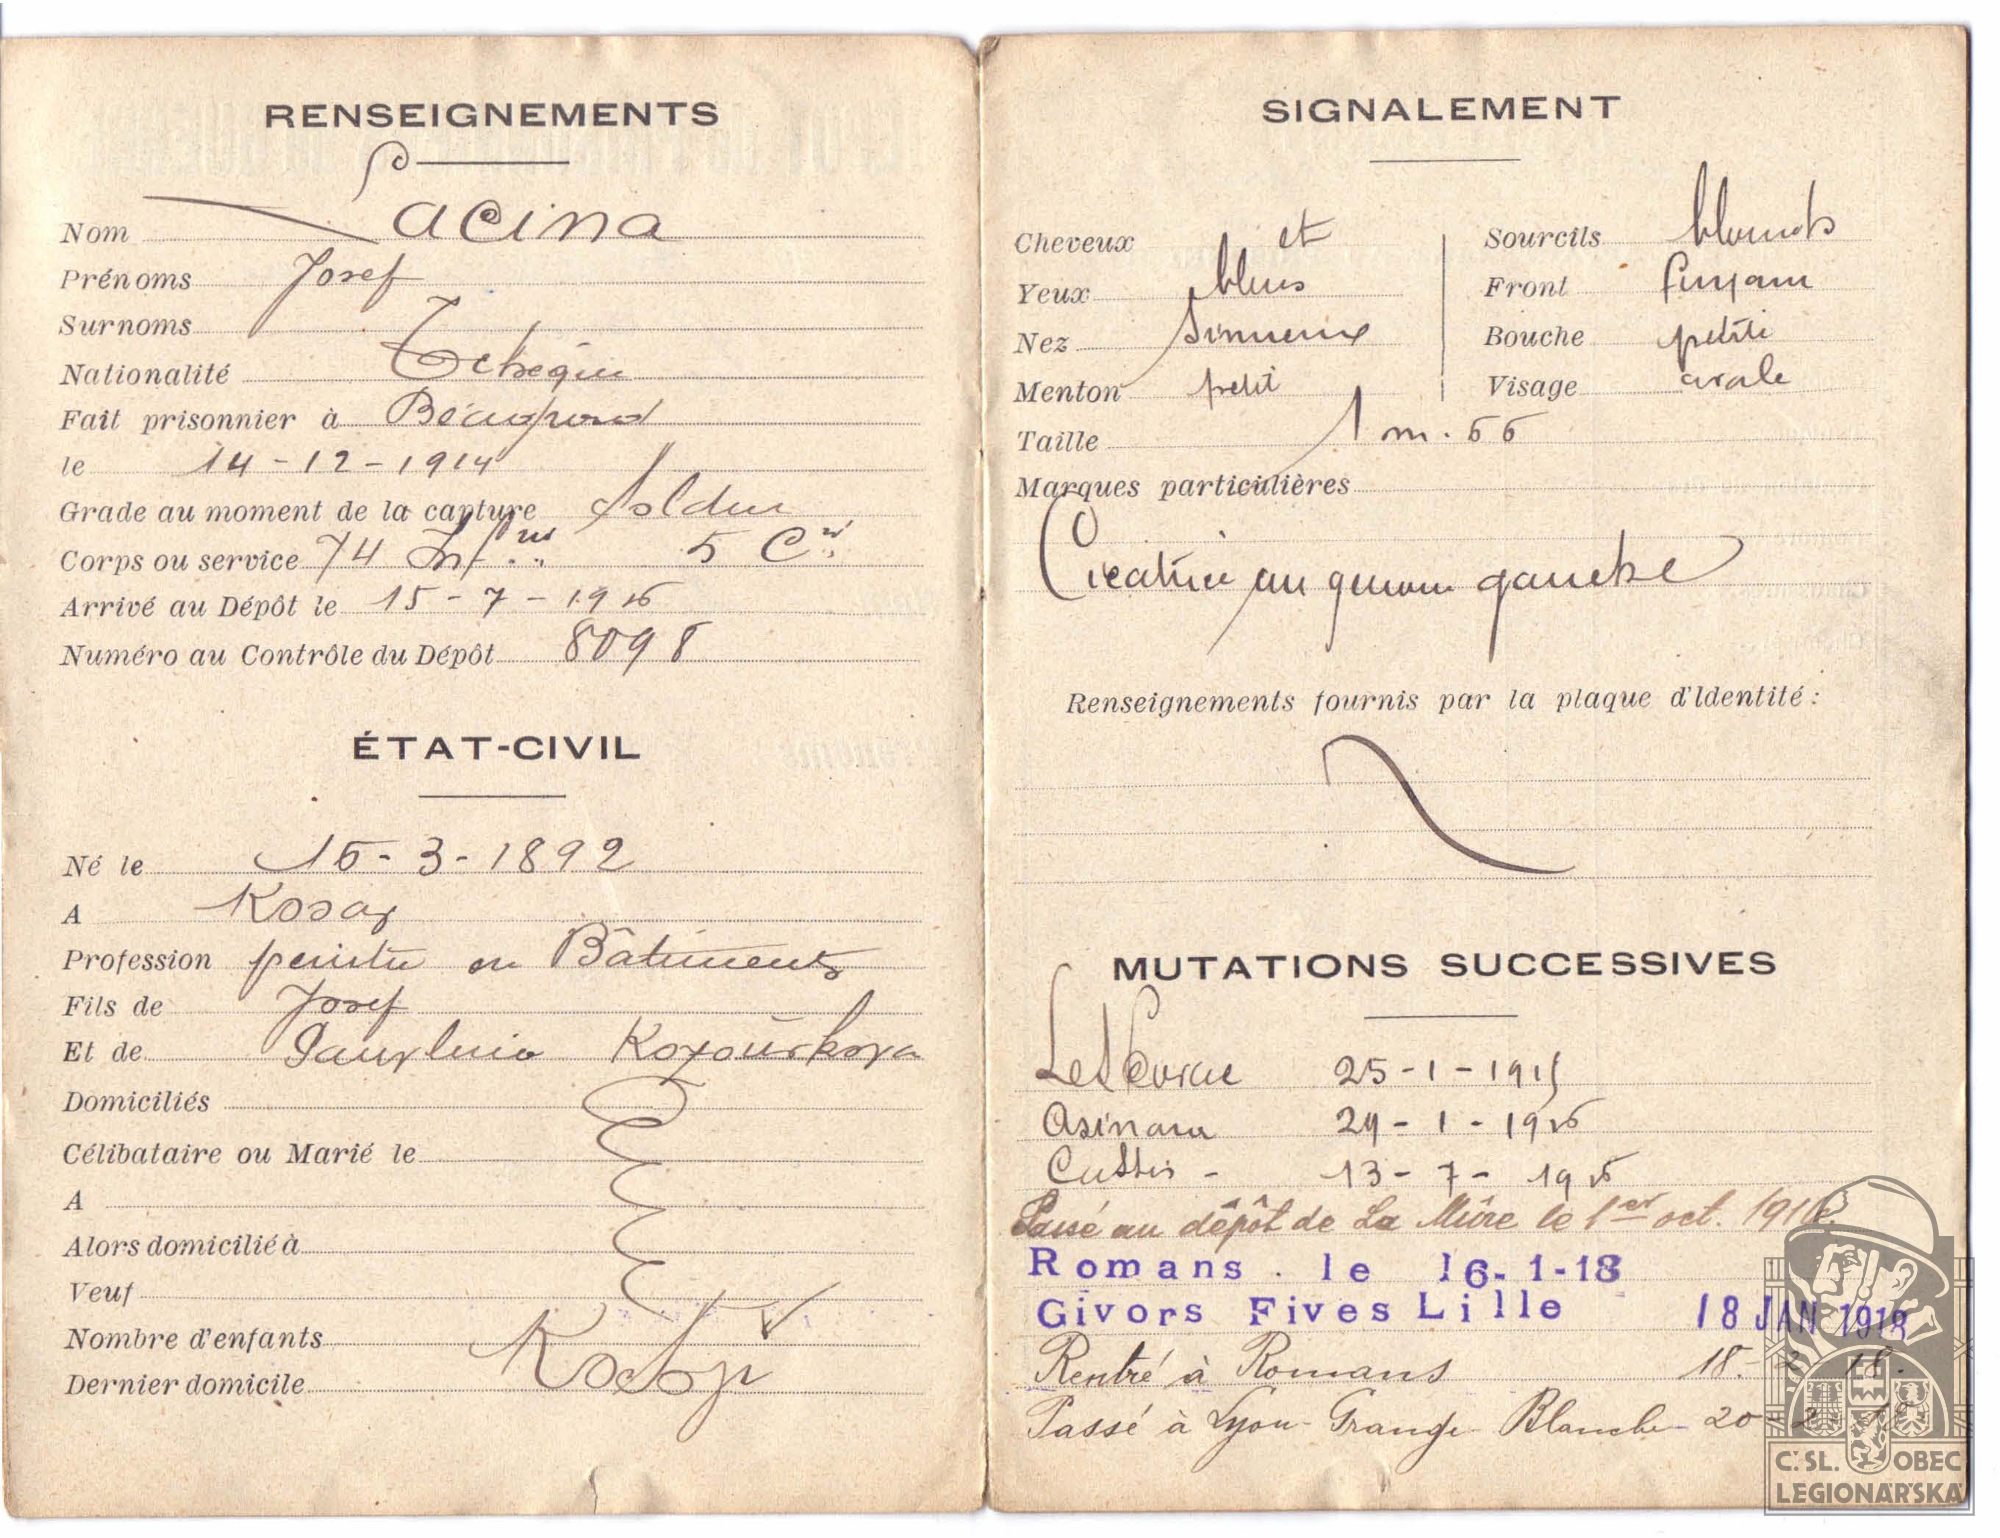 RENSEIGNEMENTS
Nom Lacina
Prénoms Josef
Surnoms
Nationalité Tchèque
Fait prisonnier à
le 14-12-1914
Grade au moment de la capture Soldat
Corps ou service 74 Inf 5 Cie
Arrivé au Dépôt le 15-7-1916
Numéro au Contrôle du Dépôt 8098
ÉTAT-CIVIL
Né le 15-3-1892
A
Profession peintre en Bâtiments
Fils de Josef
Et de
Domiciliés
Célibataire ou Marié le
A
Alors domicilié à
Veuf
Nombre d'enfants
Dernier domicile
SIGNALEMENT
Cheveux et Sourcils blonds
Yeux bleus Front fuyant
Nez Sinueux Bouche petite
Menton petit Visage ovale
Taille 1 m. 66
Marques particulières
Cicatrice au genou gauche
Renseignements fournis par la plaque d'Identité :
MUTATIONS SUCCESSIVES
25-1-1915
Asinara 24-1-1916
13-7-1916
Passé au dépôt de La Mûre le 1er oct. 1916.
Romans. le 16-1-18
Givors Fives Lille 18 JAN 1918
Rentré à Romans 18-2 18.
Passé à Lyon-Grange Blanche 20-2 18
Č. SL. OBEC
LEGIONÁŘSKÁ